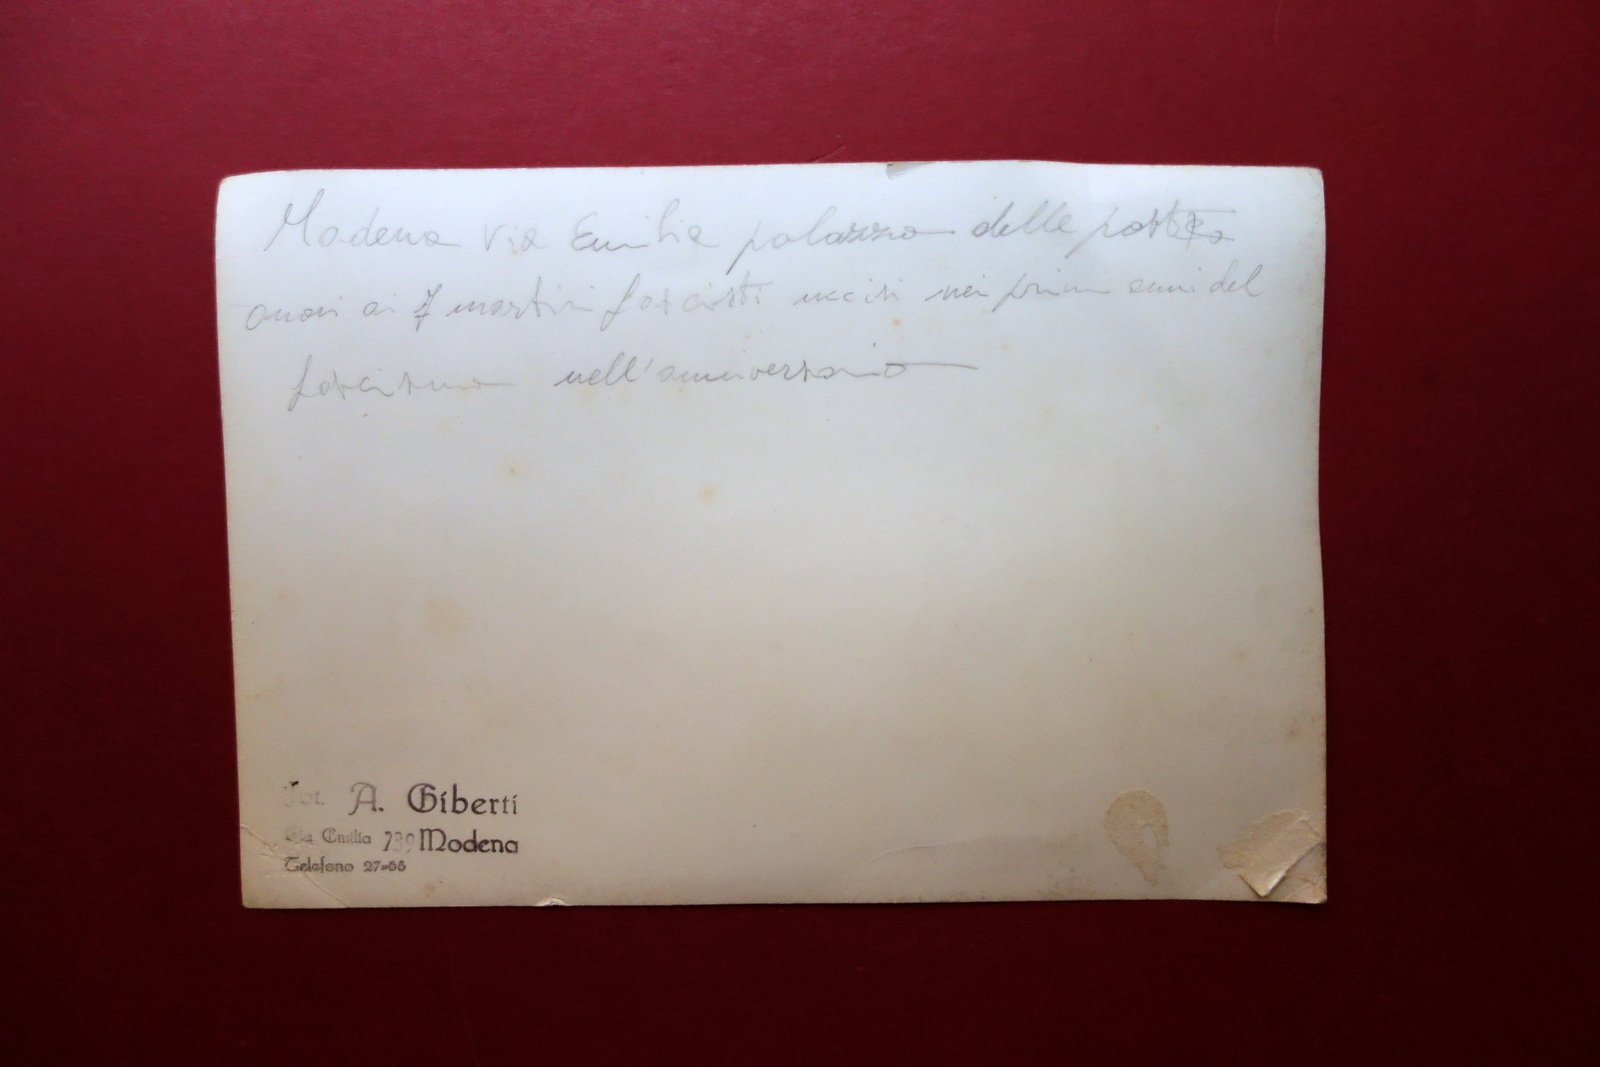 Modena via Emilia palazzo delle posta
onori ai 7 martiri fascisti uccisi nei primi anni del
fascismo nell'anniversario
Fot. A. Giberti
Via Emilia 739 Modena
Telefono 27-66